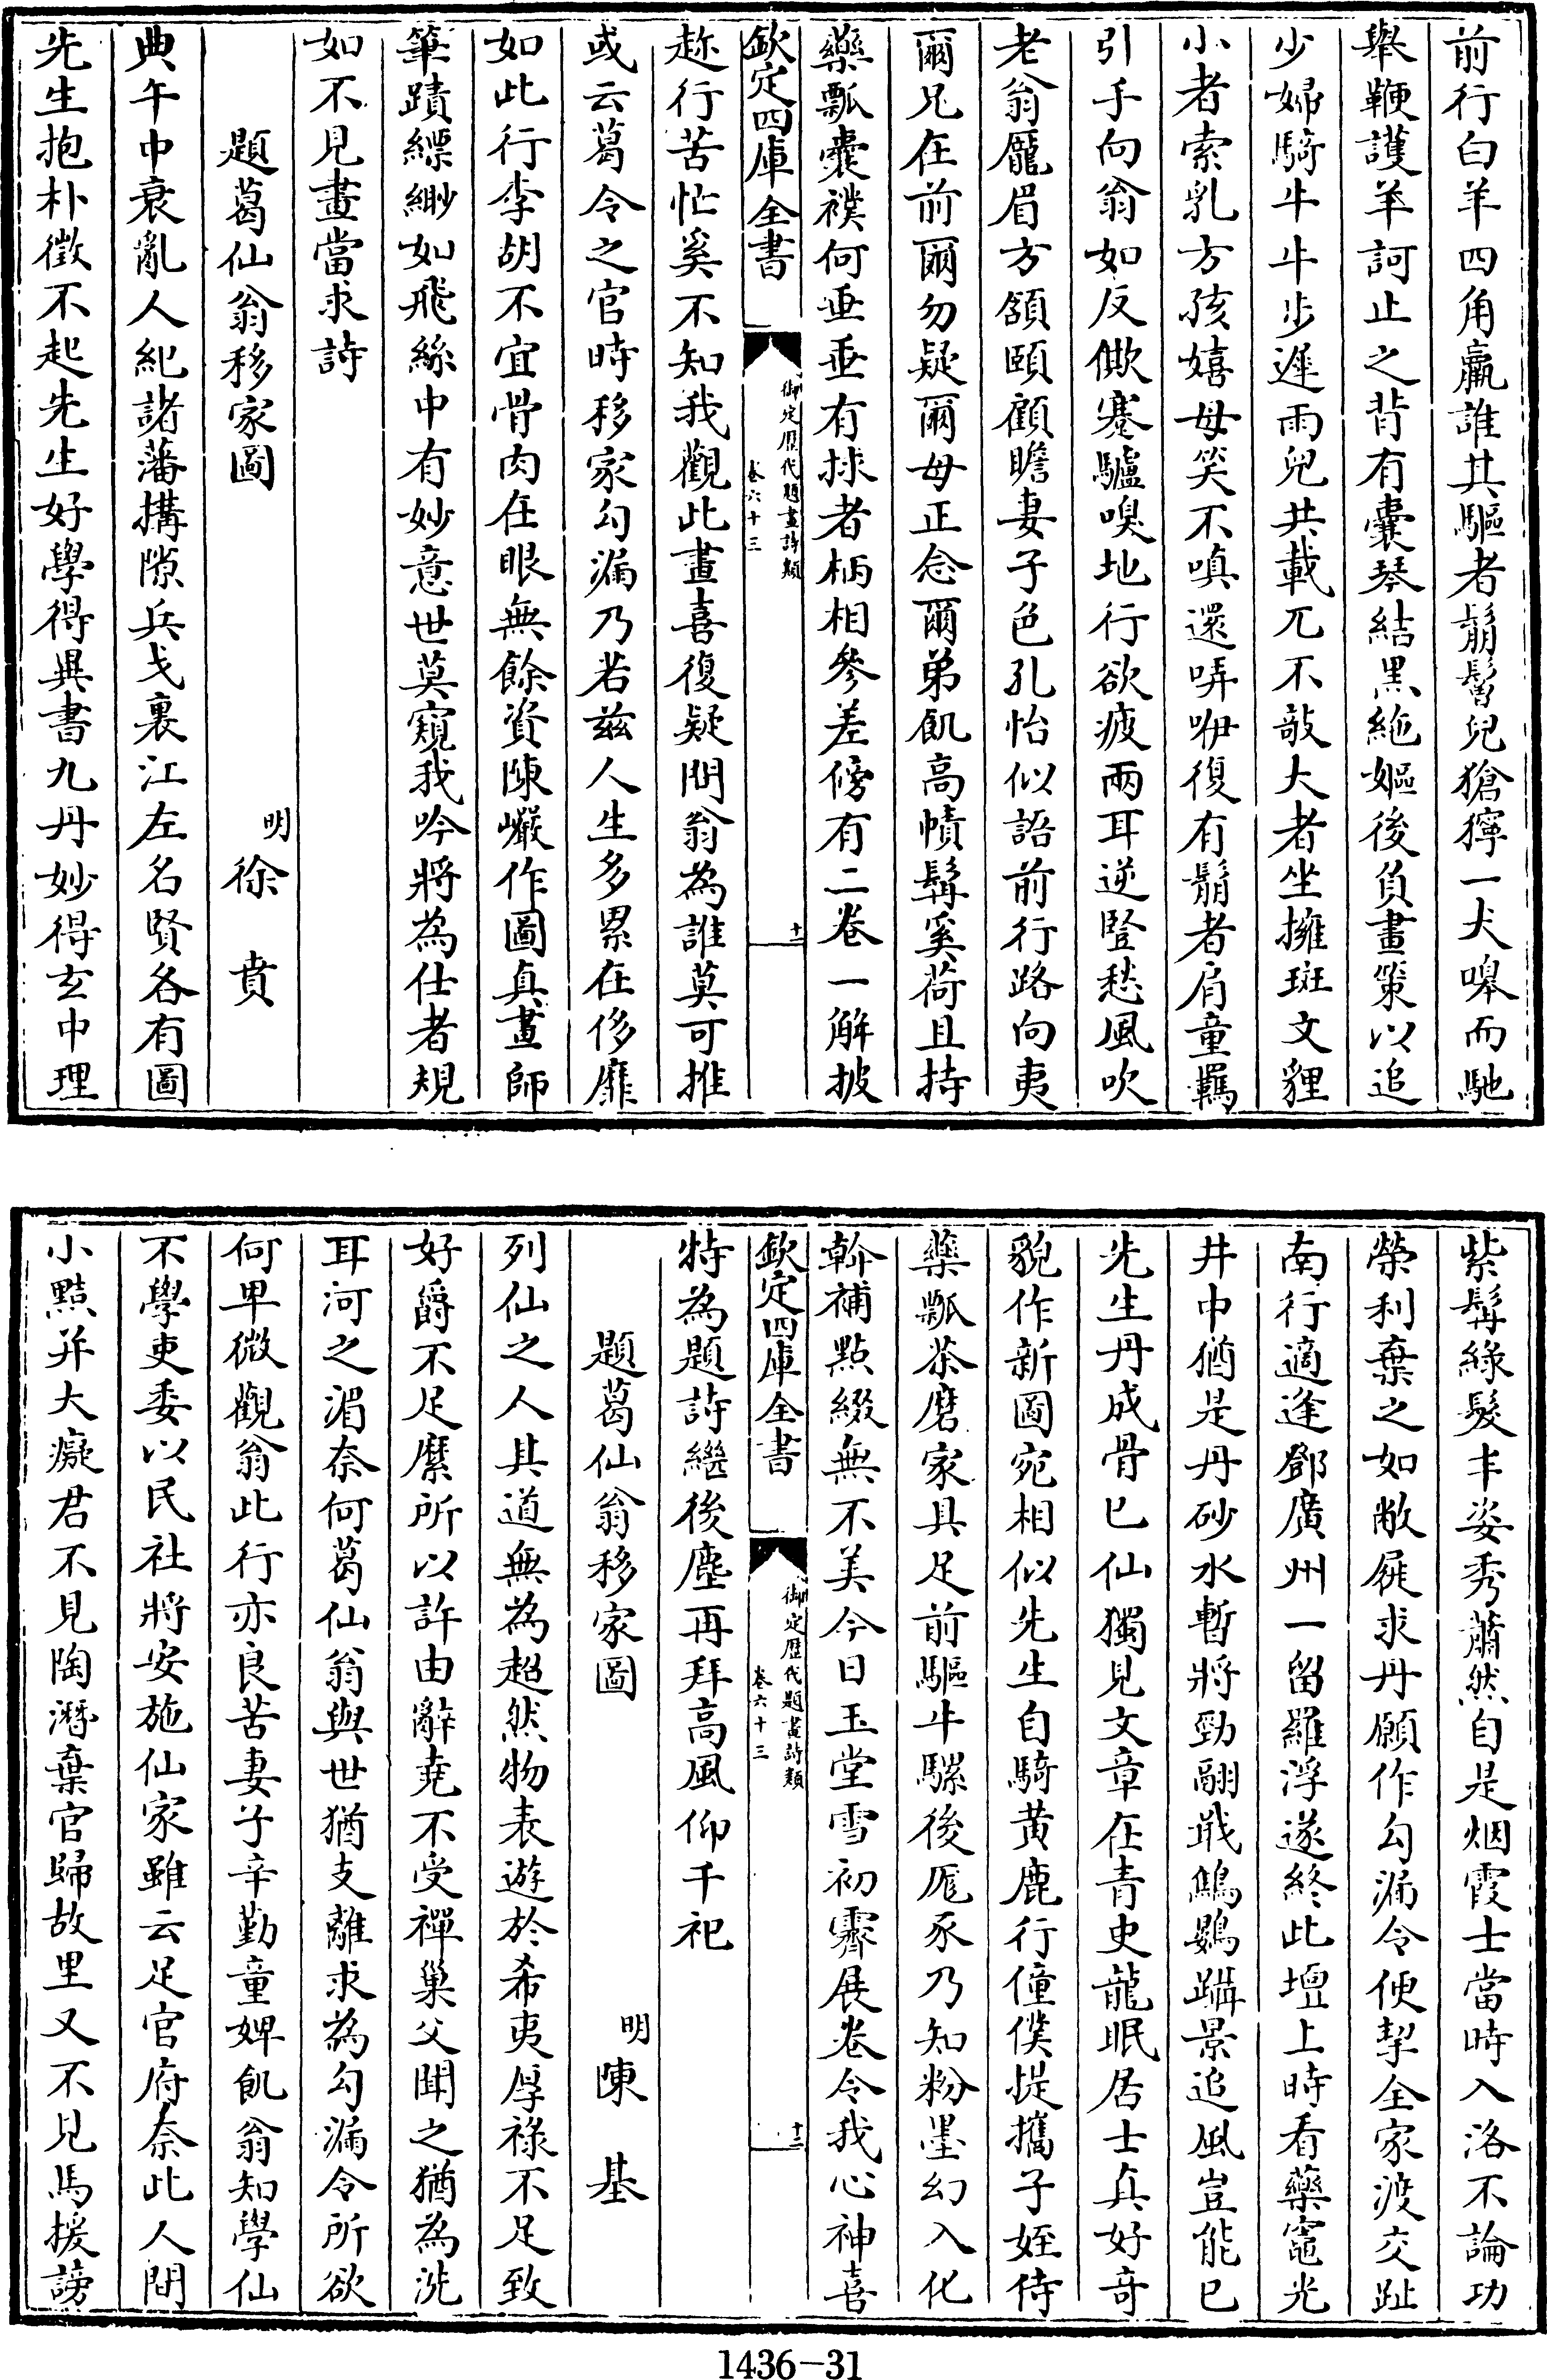 前行白羊四角羸誰其驅者鬅鬙兒獊獰一犬嘷而馳
舉鞭護羊訶止之背有囊琴結黑絁嫗後負畫策以追
少婦騎牛牛步遲兩兒共載兀不敧大者坐擁斑文貍
小者索乳方孩嬉母笑不嗔還哢咿復有髾者肩童羈
引手向翁如反僛蹇驢嗅地行欲疲兩耳逆豎愁風吹
老翁龎眉方頷頤顧瞻妻子色孔怡似語前行路向夷
爾兄在前爾勿疑爾母正念爾弟飢高幘髯奚荷且持
藥瓢囊襆何垂垂有捄者柄相參差傍有二卷一解披
欽定四庫全書
御定歷代題畫詩類
卷六十三
十一
趂行苦忙奚不知我觀此畫喜復疑問翁為誰莫可推
或云葛令之官時移家勾漏乃若兹人生多累在侈靡
如此行李胡不宜骨肉在眼無餘資陳巖作圖真畫師
筆蹟縹緲如飛絲中有妙意世莫窺我吟將為仕者規
如不見畫當求詩
題葛仙翁移家圖
明徐賁
典午中衰亂人紀諸藩搆隙兵戈裏江左名賢各有圖
先生抱朴徵不起先生好學得異書九丹妙得玄中理
紫髯綠髮丰姿秀蕭然自是烟霞士當時入洛不論功
榮利棄之如敝屣求丹願作勾漏令便挈全家渡交趾
南行適逢鄧廣州一留羅浮遂終此壇上時看藥竈光
井中猶是丹砂水暫將勁翮戢鷦鷃躡景追風豈能已
先生丹成骨已仙獨見文章在青史龍眠居士真好奇
貌作新圖宛相似先生自騎黄鹿行僮僕提攜子姪侍
藥瓢茶磨家具足前驅牛騾後尨豕乃知粉墨幻入化
幹補點綴無不美今日玉堂雪初霽展卷令我心神喜
欽定四庫全書
御定歷代題畫詩類
卷六十三
十二
特為題詩繼後塵再拜高風仰千祀
題葛仙翁移家圖
明陳基
列仙之人其道無為超然物表遊於希夷厚祿不足致
好爵不足縻所以許由辭堯不受禪巢父聞之猶為洗
耳河之湄奈何葛仙翁與世猶支離求為勾漏令所欲
何卑微觀翁此行亦良苦妻子辛勤童婢飢翁知學仙
不學吏委以民社將安施仙家雖云足官府奈此人間
小黠并大癡君不見陶潛棄官歸故里又不見馬援謗
1436—31